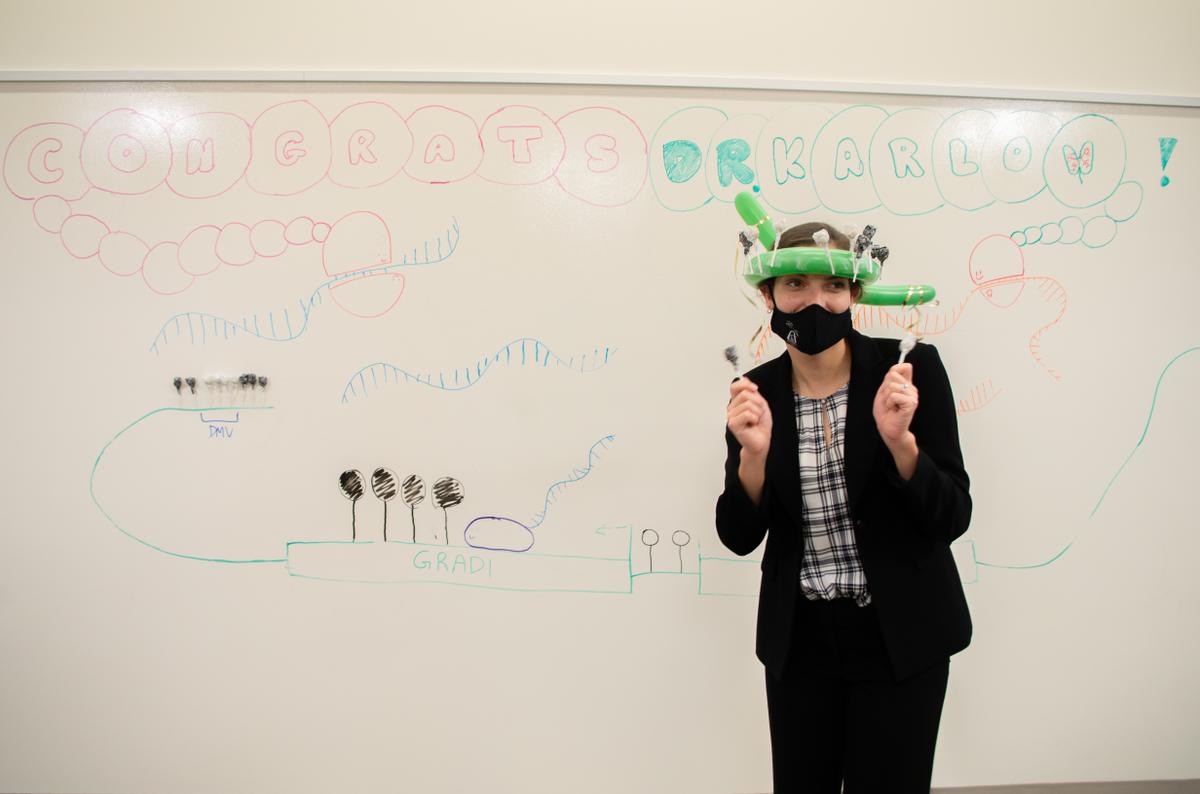 CONGRATS DR KARLOW!
DMV
GRAD1